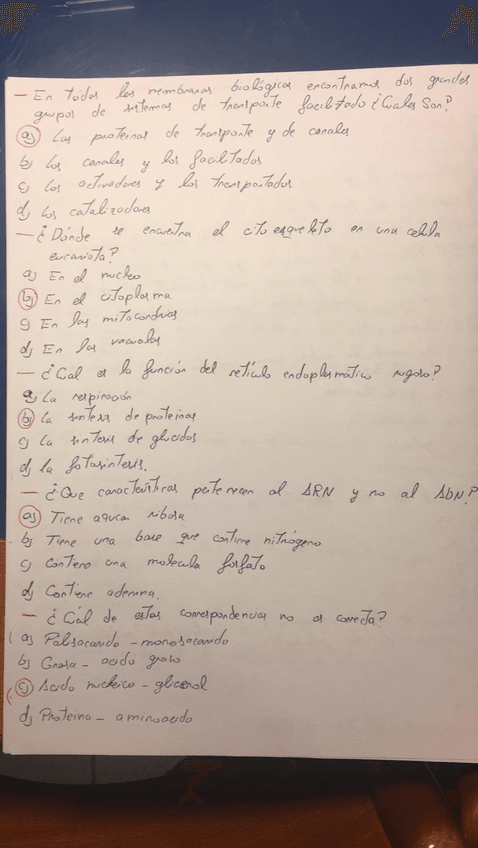 — En todas las membranas biológicas encontramos dos grandes
grupos de sistemas de transporte facilitado ¿Cuales Son?
a) Las proteinas de transporte y de canales
b) Los canales y los facilitados
c) Los activadores y los transportados
d) Los catalizadores
— ¿Dónde se encuentra el citoesqueleto en una celula
eucariota?
a) En el nucleo
b) En el citoplasma
c) En las mitocondrias
d) En las vacuolas
— ¿Cual es la función del retículo endoplasmático rugoso?
a) La respiración
b) La sintesis de proteinas
c) La sintesis de glucidos
d) la fotosintesis.
— ¿Que caracteristicas pertenecen al ARN y no al ADN?
a) Tiene azucar ribosa
b) Tiene una base que contiene nitrógeno
c) Contiene una molecula fosfato
d) Contiene adenina.
— ¿Cúal de estas correspondencias no es correcta?
a) Polisacarido - monosacarido
b) Grasa - acido graso
c) Acido nucleico - glicerol
d) Proteina - aminoacido